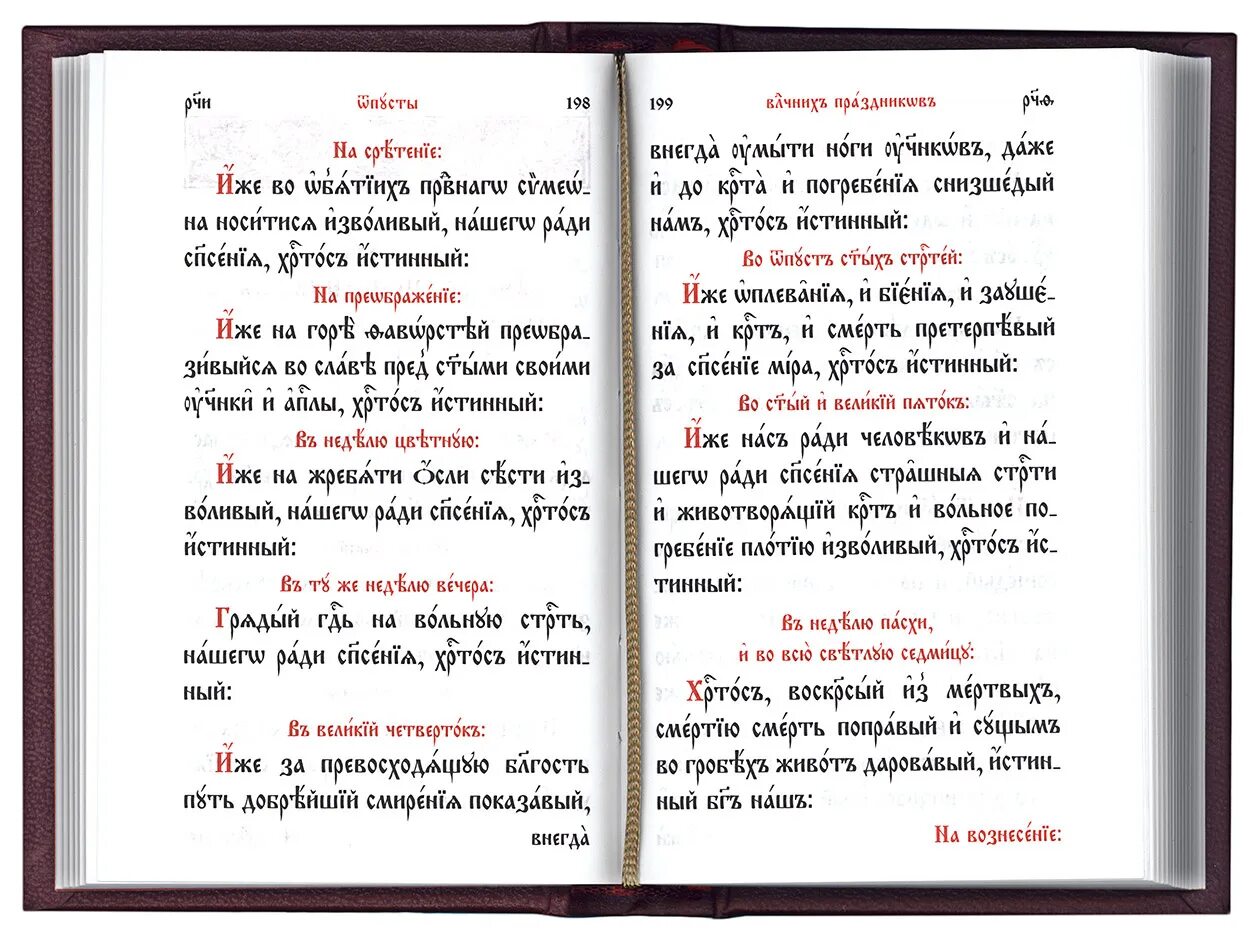 р҃чи ѿпꙋсты 198
На срѣ́тенїе:
И҆́же во ѡ҆б̾ѧ́тїихъ првⷣнагѡ сѷмеѡ_
на носи́тисѧ и҆зво́ливый, на́шегѡ ра́ди
сп҃се́нїѧ, хрⷭ҇то́съ и҆́стинный:
На преѡбраже́нїе:
И҆́же на горѣ̀ ѳавѡ́рстѣй преѡбра_
зи́выйсѧ во сла́вѣ пред̾ ст҃ы́ми свои́ми
ᲂу҆чн҃ки̑ и҆ а҆пⷭ҇лы, хрⷭ҇то́съ и҆́стинный:
Въ недѣ́лю цвѣ́тнꙋю:
И҆́же на жребѧ́ти ѻ҆́сли сѣ́сти и҆з_
во́ливый, на́шегѡ ра́ди сп҃се́нїѧ, хрⷭ҇то́съ
и҆́стинный:
Въ тꙋ́ же недѣ́лю ве́чера:
Грѧды́й гдⷭ҇ь на во́льнꙋю стрⷭ҇ть,
на́шегѡ ра́ди сп҃се́нїѧ, хрⷭ҇то́съ и҆́стин_
ный:
Въ вели́кїй четверто́къ:
И҆́же за превосходѧ́щꙋю бл҃гость
пꙋ́ть добрѣ́йшїй смире́нїѧ показа́вый,
внегда̀
199 влⷣчнихъ пра́здникѡвъ р҃чѳ
внегда̀ ᲂу҆мы́ти но́ги ᲂу҆чн҃кѡ́въ, да́же
и҆ до крⷭ҇та̀ и҆ погребе́нїѧ снизше́дый
на́мъ, хрⷭ҇то́съ и҆́стинный:
Во ѿпꙋстъ ст҃ы́хъ стрⷭ҇те́й:
И҆́же ѡ҆плева̑нїѧ, и҆ бїє́нїѧ, и҆ заꙋшє́_
нїѧ, и҆ крⷭ҇тъ, и҆ сме́рть претерпѣ́вый
за сп҃се́нїе мі́ра, хрⷭ҇то́съ и҆́стинный:
Во ст҃ы́й и҆ вели́кїй пѧто́къ:
И҆́же на́съ ра́ди человѣ́кѡвъ и҆ на́_
шегѡ ра́ди сп҃се́нїѧ стра̑шныѧ стрⷭ҇ти
и҆ животворѧ́щїй крⷭ҇тъ и҆ во́льное по_
гребе́нїе пло́тїю и҆зво́ливый, хрⷭ҇то́съ и҆́с_
тинный:
Въ недѣ́лю па́схи,
и҆ во всю̀ свѣ́тлꙋю седми́цꙋ:
Хрⷭ҇то́съ, воскр҃сый и҆з̾ ме́ртвыхъ,
сме́ртїю сме́рть попра́вый и҆ сꙋ́щымъ
во гробѣ́хъ живо́тъ дарова́вый, и҆́стин_
ный бг҃ъ на́шъ:
На вознесе́нїе: